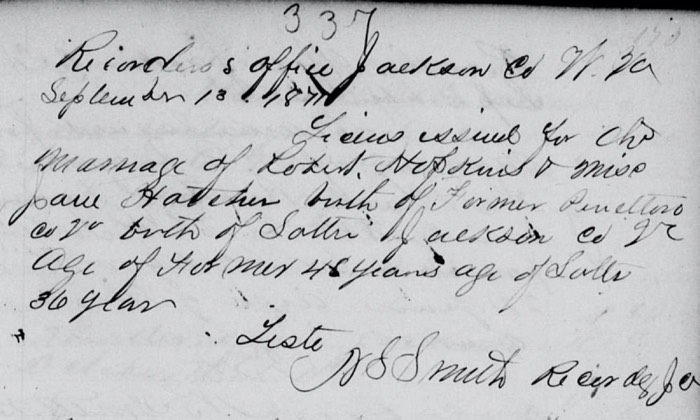 337
Recorders office Jackson Co W. Va
September 13. 1871
Licens issued for the
Marriage of Robert Hopkins & Miss
Jane Hatcher birth of Former
Co Va birth of Latter Jackson Co Va
Age of Former 48 years age of Latter
36 year
Teste
Smith Recorder J C